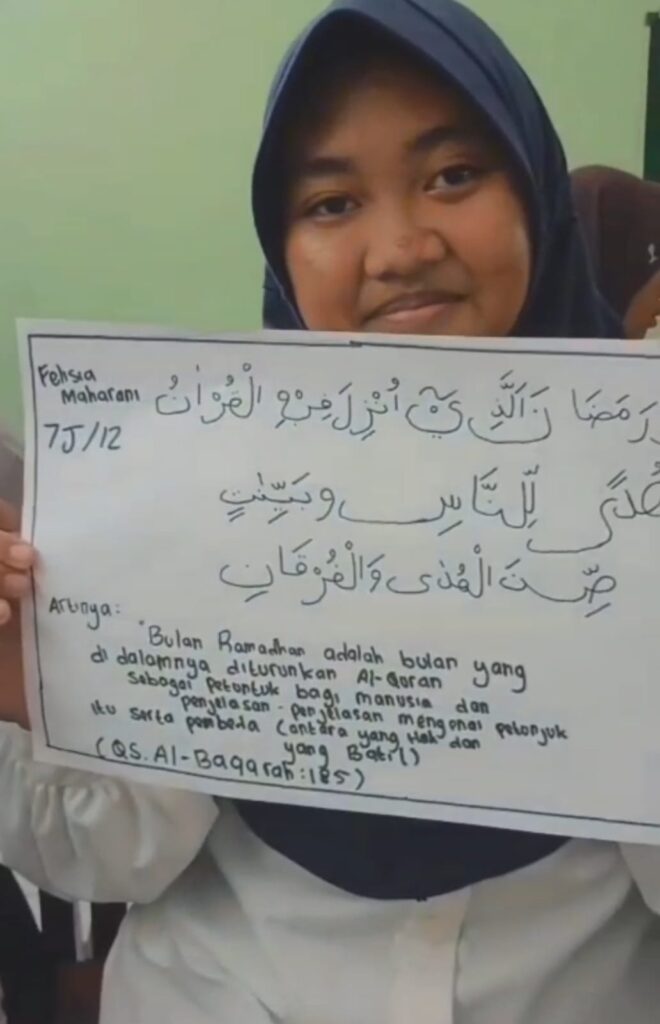 Fehsia
Maharani
7J/12
رَمَضَا نَ الَّذِيْٓ اُنْزِلَ فِيْهِ الْقُرْاٰنُ
هُدًى لِّلنَّاسِ وَبَيِّنٰتٍ
مِّنَ الْهُدٰى وَالْفُرْقَانِ
Artinya:
"Bulan Ramadhan adalah bulan yang
di dalamnya diturunkan Al-Quran
Sebagai petuntuk bagi manusia dan
penjelasan-penjelasan mengenai petonjuk
itu serta pembeda (antara yang Hak dan
yang Batil)
(QS. Al-Baqarah:185)